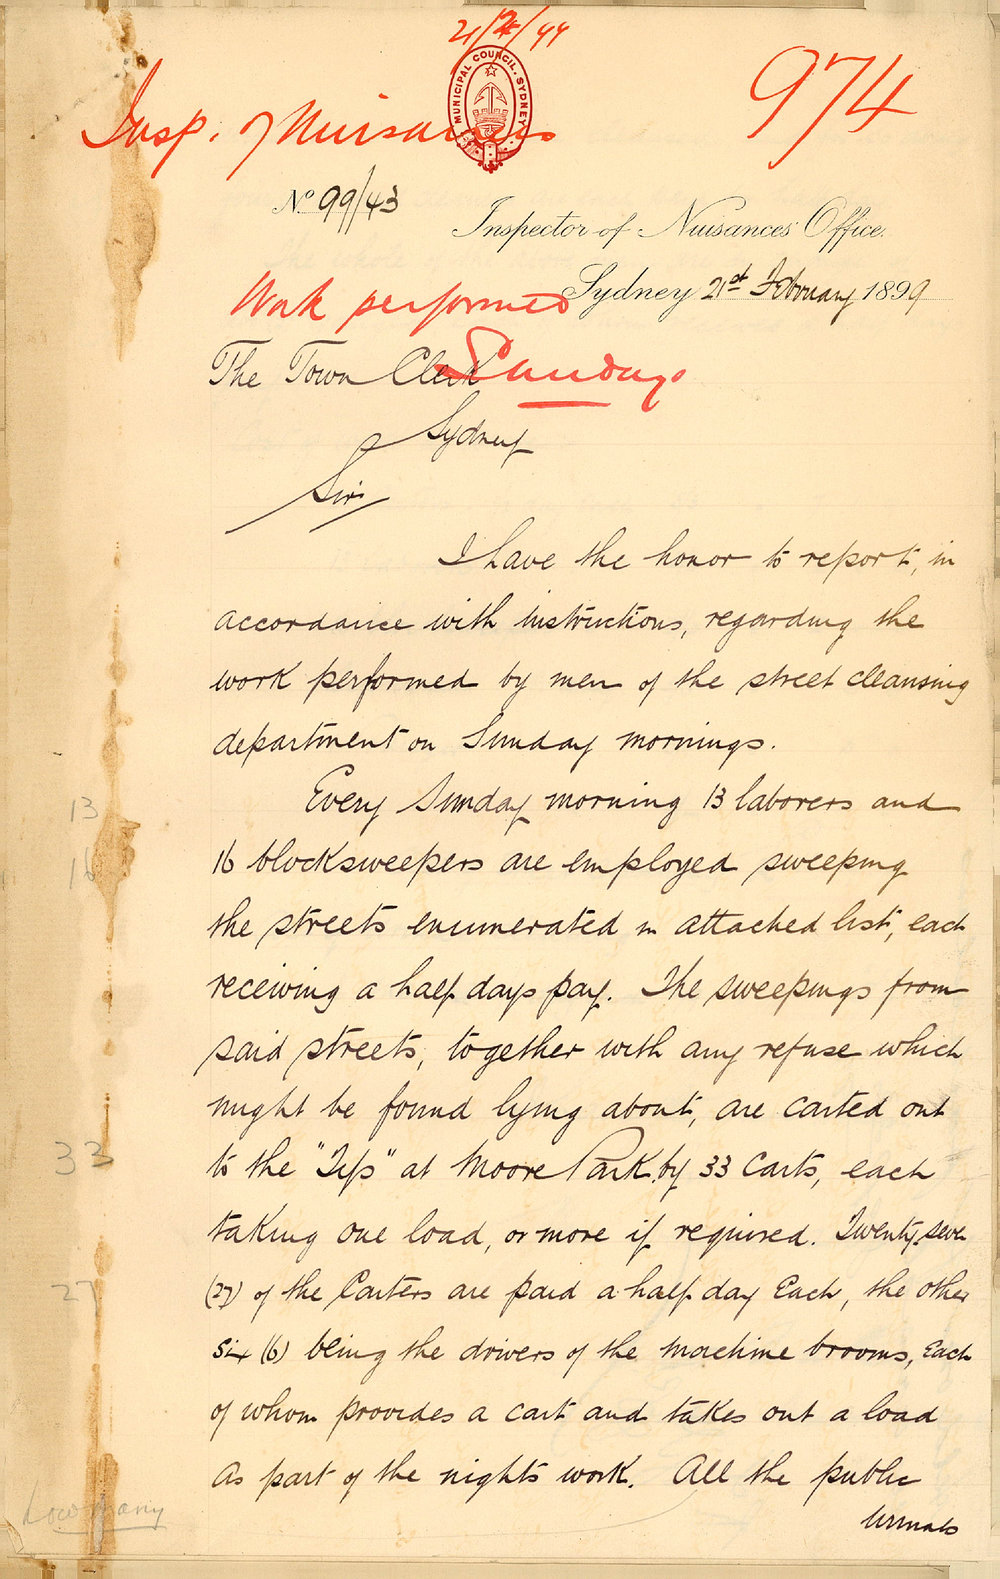 21/2/99
MUNICIPAL COUNCIL. SYDNEY
974
Insp. of Nuisances
No 99/43
Inspector of Nuisances' Office.
Sydney 21st February 1899
Work performed
Sundays
The Town Clerk
Sydney
Sir
I have the honor to report, in
accordance with instructions, regarding the
work performed by men of the street cleansing
department on Sunday mornings.
13
Every Sunday morning 13 laborers and
16
16 blocksweepers are employed sweeping
the streets enumerated in attached list, each
receiving a half days pay. The sweepings from
said streets, together with any refuse which
might be found lying about, are carted out
33
to the "Tips" at Moore Park by 33 carts, each
taking one load, or more if required. Twenty seven
27
(27) of the Carters are paid a half day Each, the other
six (6) being the drivers of the machine brooms, Each
of whom provides a cart and takes out a load
as part of the nights work. All the public
How many
Urinals